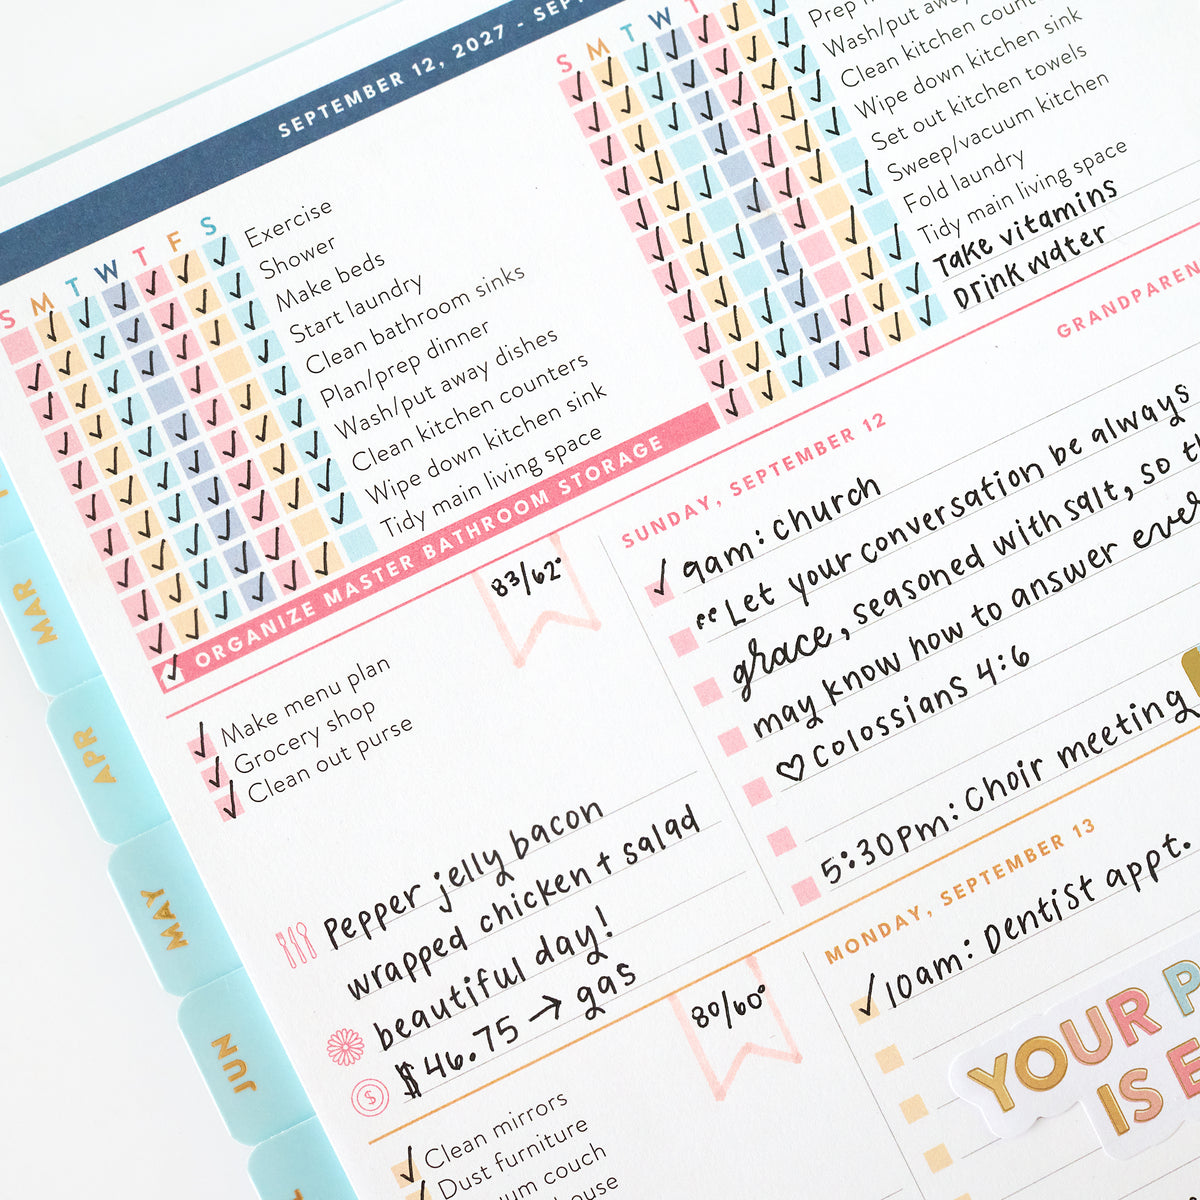 SEPTEMBER 12, 2027 - SEPT
S M T W T F S
Exercise
Shower
Make beds
Start laundry
Clean bathroom sinks
Plan/prep dinner
Wash/put away dishes
Clean kitchen counters
Wipe down kitchen sink
Tidy main living space
S M T W T
Prep
Wash/put away
Clean kitchen
Wipe down kitchen sink
Set out kitchen towels
Sweep/vacuum kitchen
Fold laundry
Tidy main living space
Take vitamins
Drink water
ORGANIZE MASTER BATHROOM STORAGE
83/62°
Make menu plan
Grocery shop
Clean out purse
Pepper jelly bacon
wrapped chicken + salad
beautiful day!
$46.75 → gas
GRANDPAREN
SUNDAY, SEPTEMBER 12
9am: church
"Let your conversation be always
grace, seasoned with salt, so
may know how to answer
♡ Colossians 4:6
5:30pm: Choir meeting
MONDAY, SEPTEMBER 13
10am: Dentist appt.
80/60°
Clean mirrors
Dust furniture
couch
YOUR
IS
MAR
APR
MAY
JUN